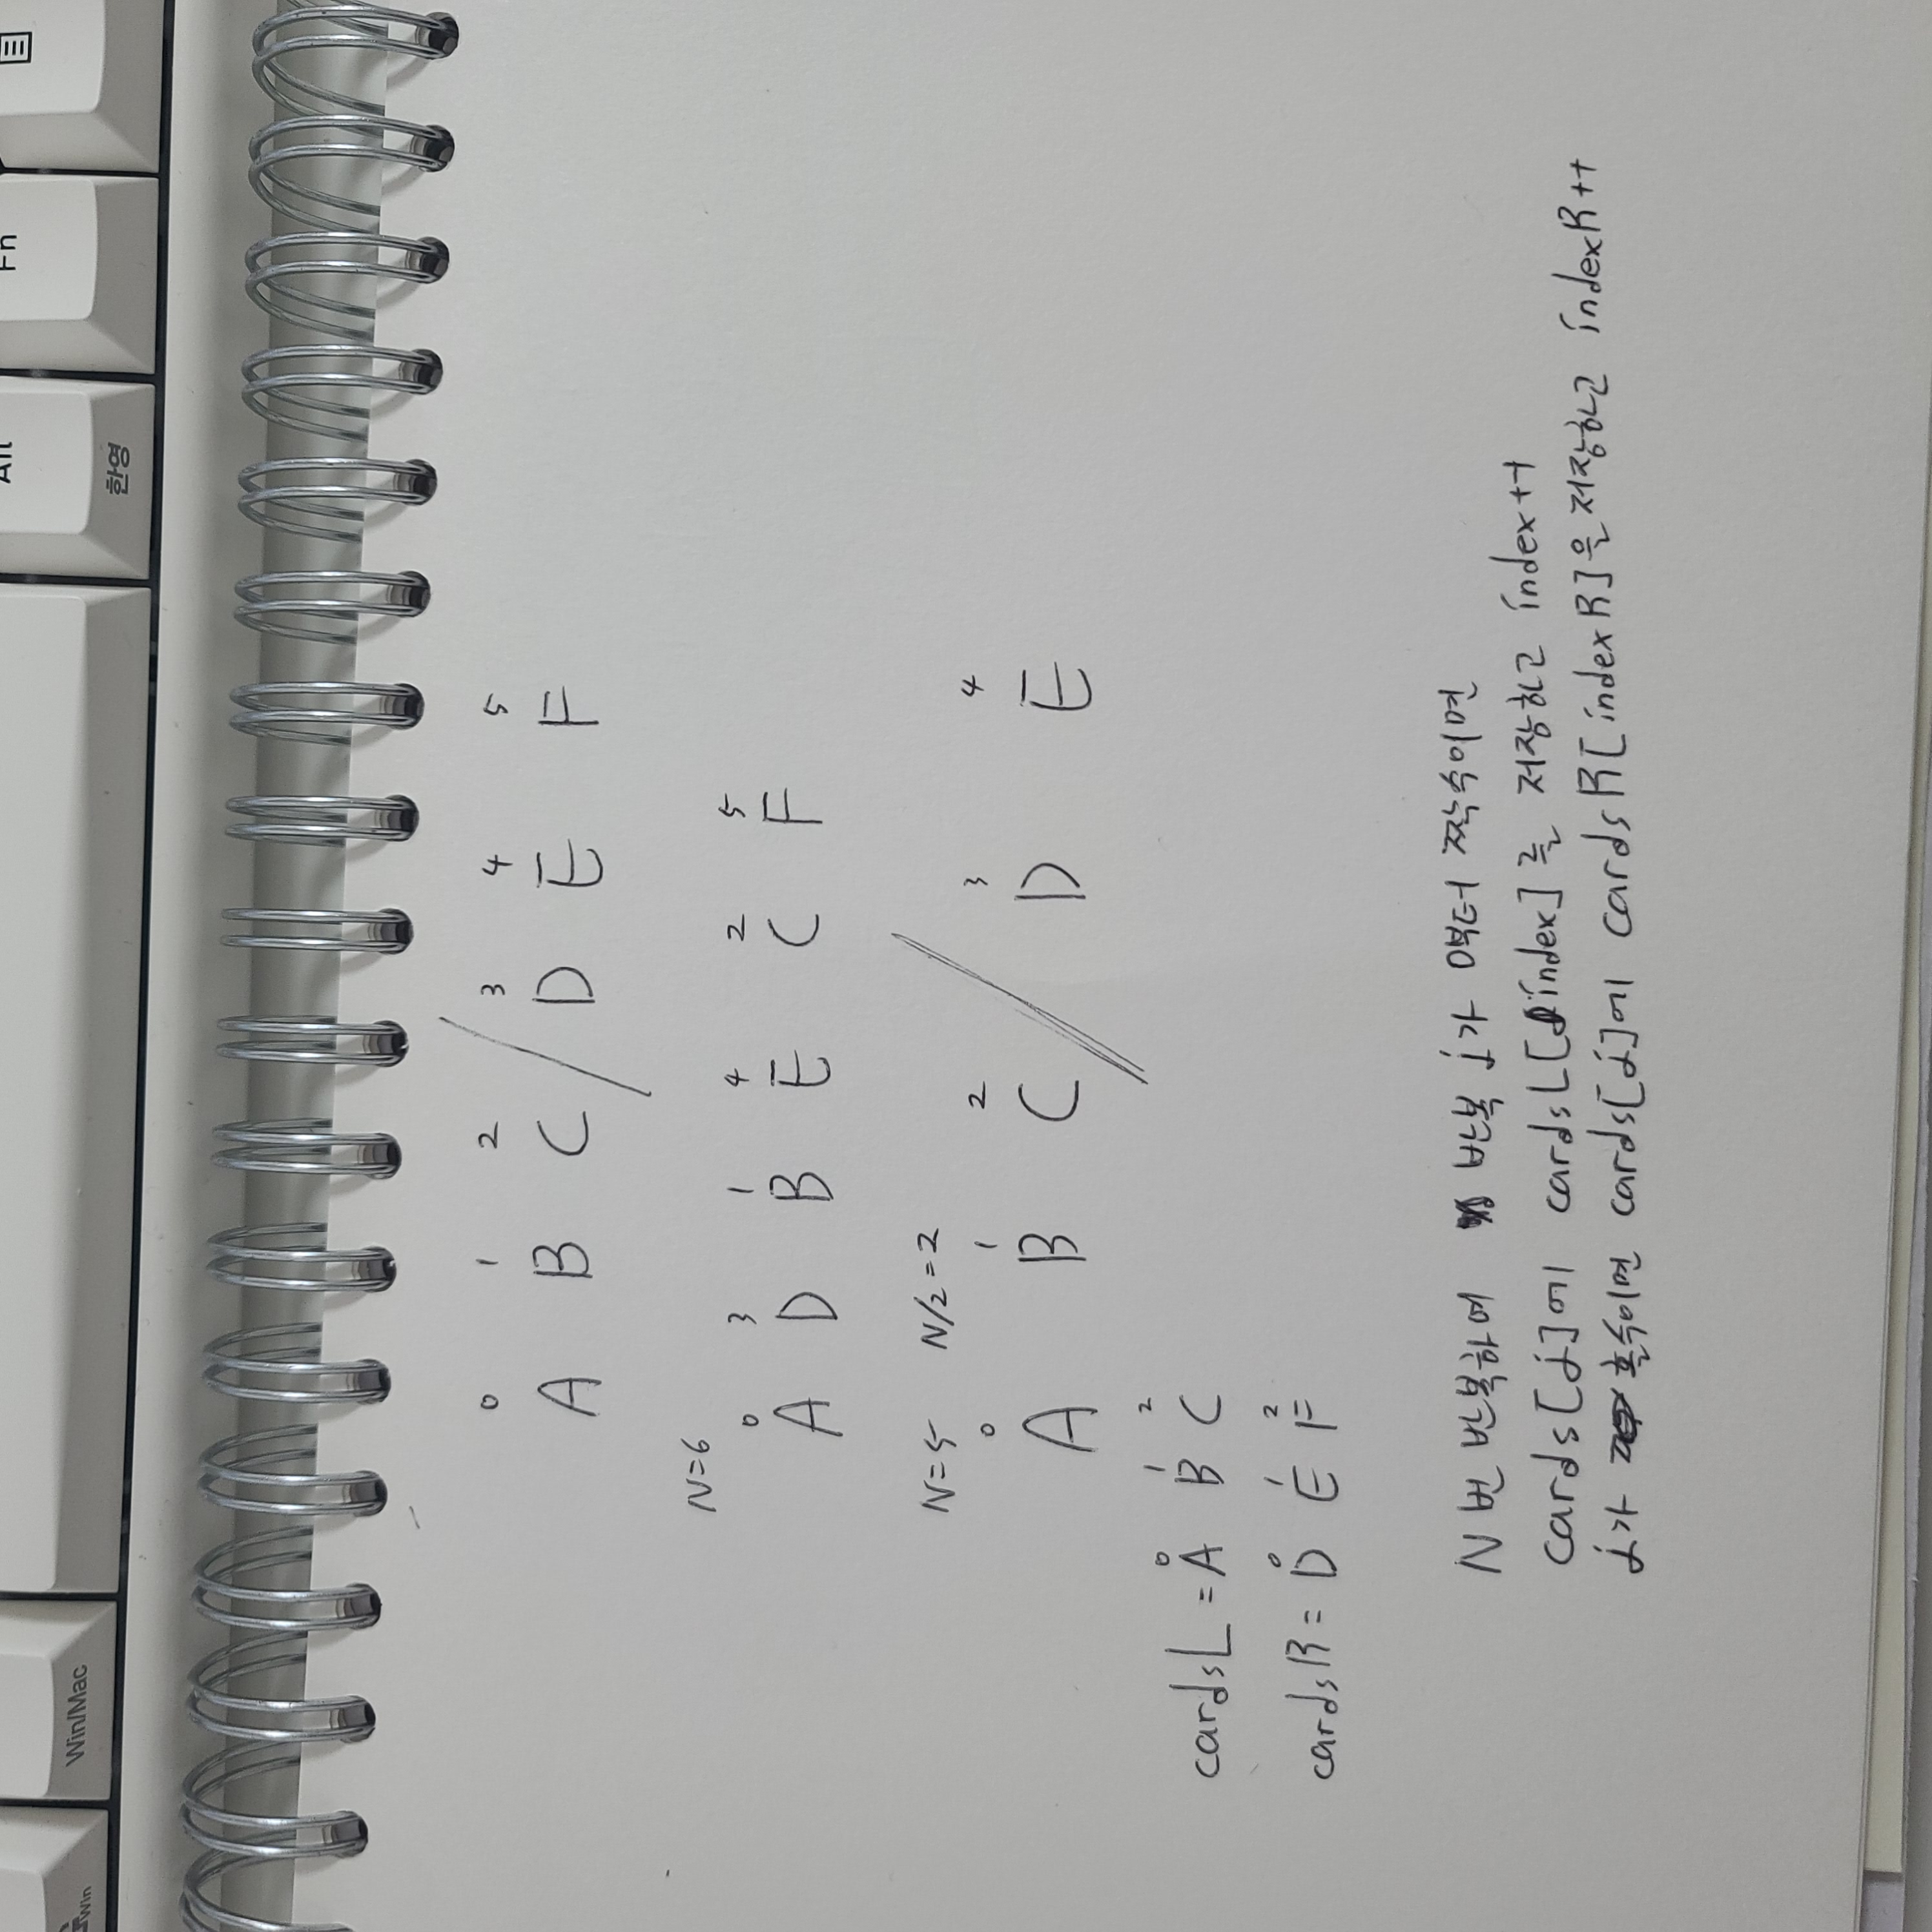 Win
Win/Mac
Alt
한영
Fn
0 1 2 3 4 5
A B C / D E F
N=6
0 3 1 4 2 5
A D B E C F
N=5 N/2=2
0 1 2 3 4
A B C / D E
0 1 2
cardsL = A B C
0 1 2
cardsR = D E F
N번 반복하여 반복 j가 0부터 짝수이면
cards[j]에 cardsL[index]를 저장하고 index++
j가 홀수이면 cards[j]에 cardsR[indexR]을 저장하고 indexR++